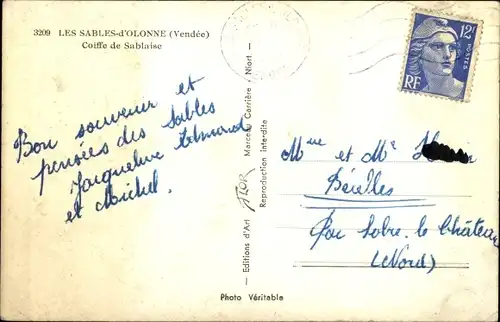 3209 LES SABLES-d'OLONNE (Vendée)
Coiffe de Sablaise
Bon souvenir et
pensées des Sables
Jacqueline Edmond
et Michel.
Editions d'Art JACK Marceau Carrière - Niort -
Reproduction interdite
Photo Véritable
12F
POSTES
RF
Mme et Mr
Bérelles
Par Solre. le Château
(Nord)